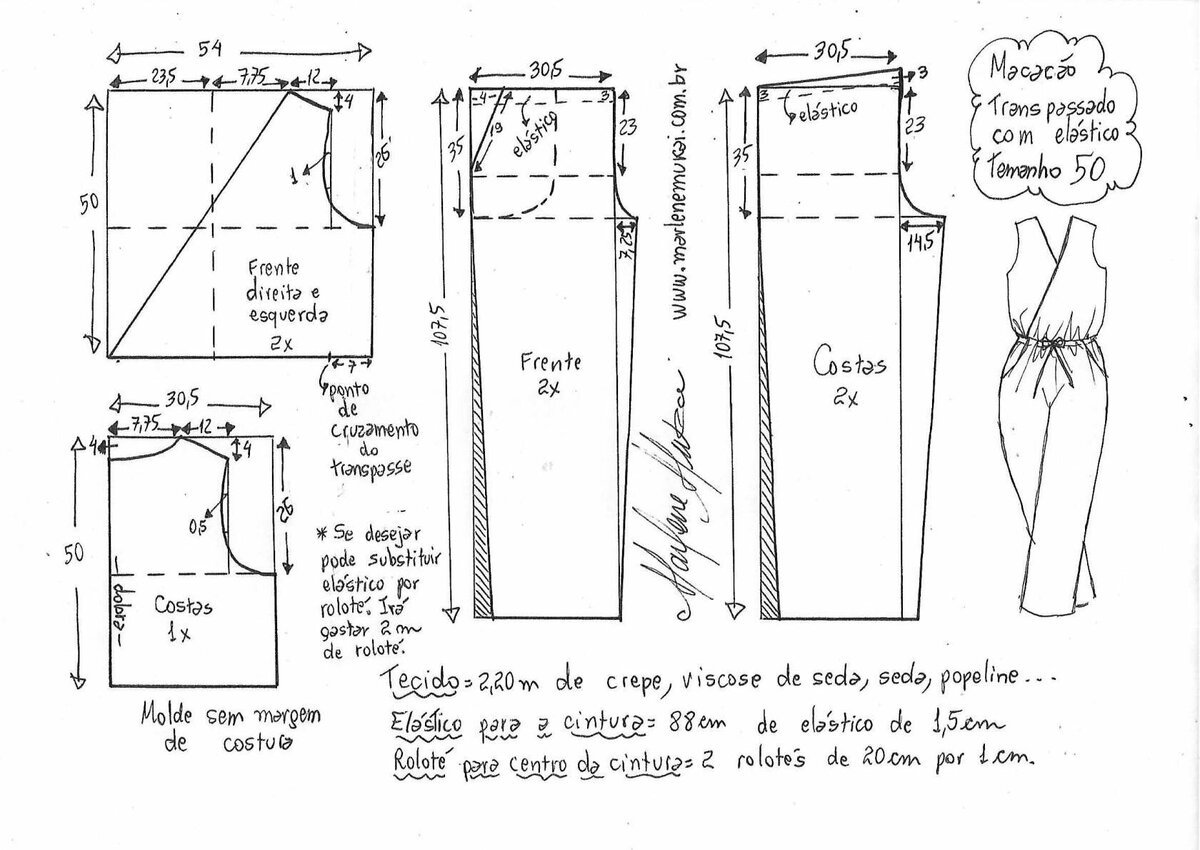 54
23,5
7,75
12
4
50
26
1
Frente
direita e
esquerda
2x
7
ponto
de
cruzamento
do
transpasse
30,5
7,75
12
4
4
50
26
0,5
dobra
Costas
1x
Molde sem margem
de costura
* Se desejar
pode substituir
elástico por
roloté. Irá
gastar 2m
de roloté.
30,5
4
3
19
elástico
35
23
7,25
107,5
Frente
2x
www.marlenemukai.com.br
30,5
3
3
elástico
35
23
14,5
107,5
Costas
2x
Macacão
Transpassado
com elástico
Temanho 50
Tecido = 2,20m de crepe, viscose de seda, seda, popeline...
Elástico para a cintura = 88cm de elástico de 1,5cm
Roloté para centro da cintura = 2 rolotés de 20cm por 1cm.